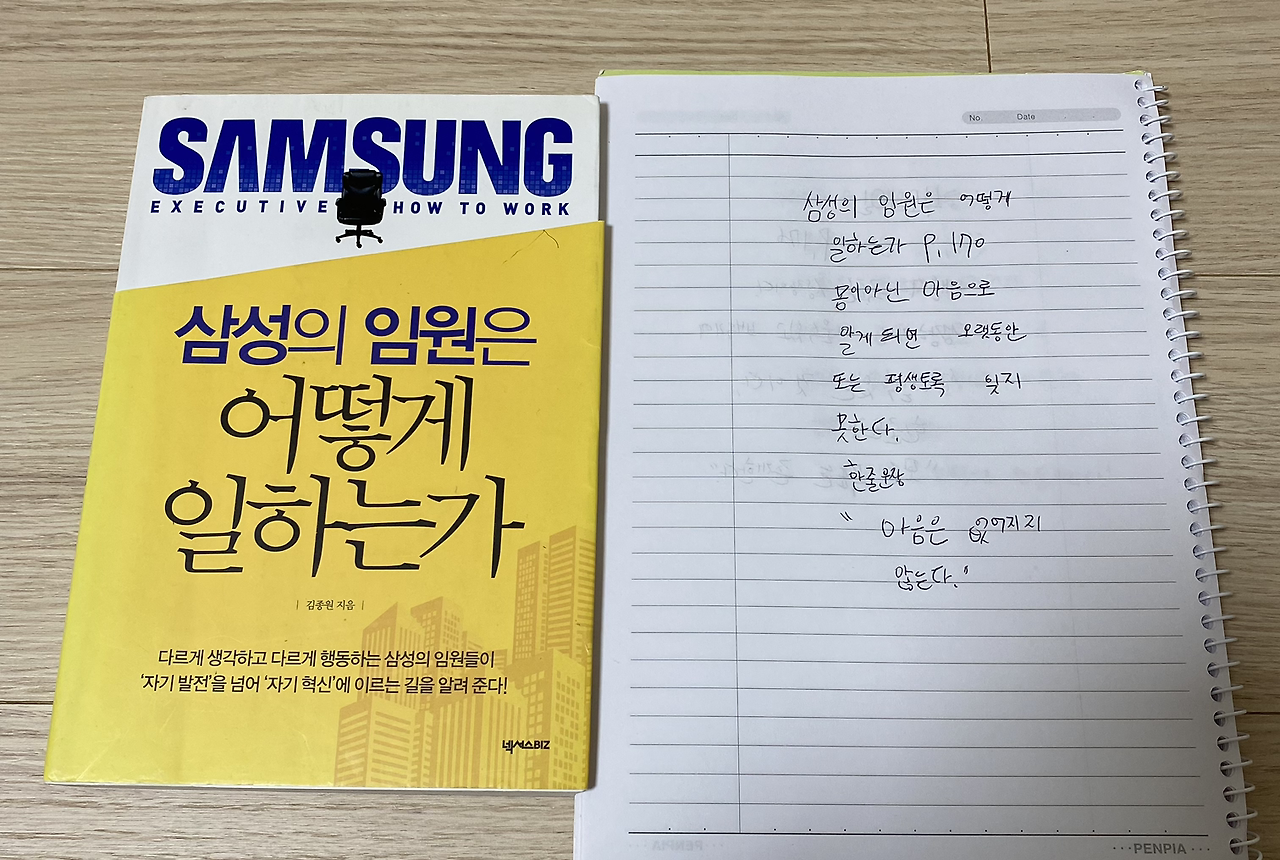 SAMSUNG
EXECUTIVE HOW TO WORK
삼성의 임원은
어떻게
일하는가
| 김종원 지음 |
다르게 생각하고 다르게 행동하는 삼성의 임원들이
‘자기 발전’을 넘어 ‘자기 혁신’에 이르는 길을 알려 준다!
넥서스BIZ
No. Date
삼성의 임원은 어떻게
일하는가 P. 170
몸이아닌 마음으로
알게 되면 오랫동안
또는 평생토록 잊지
못한다.
한줄문장
"마음은 없어지지
않는다."
PENPIA